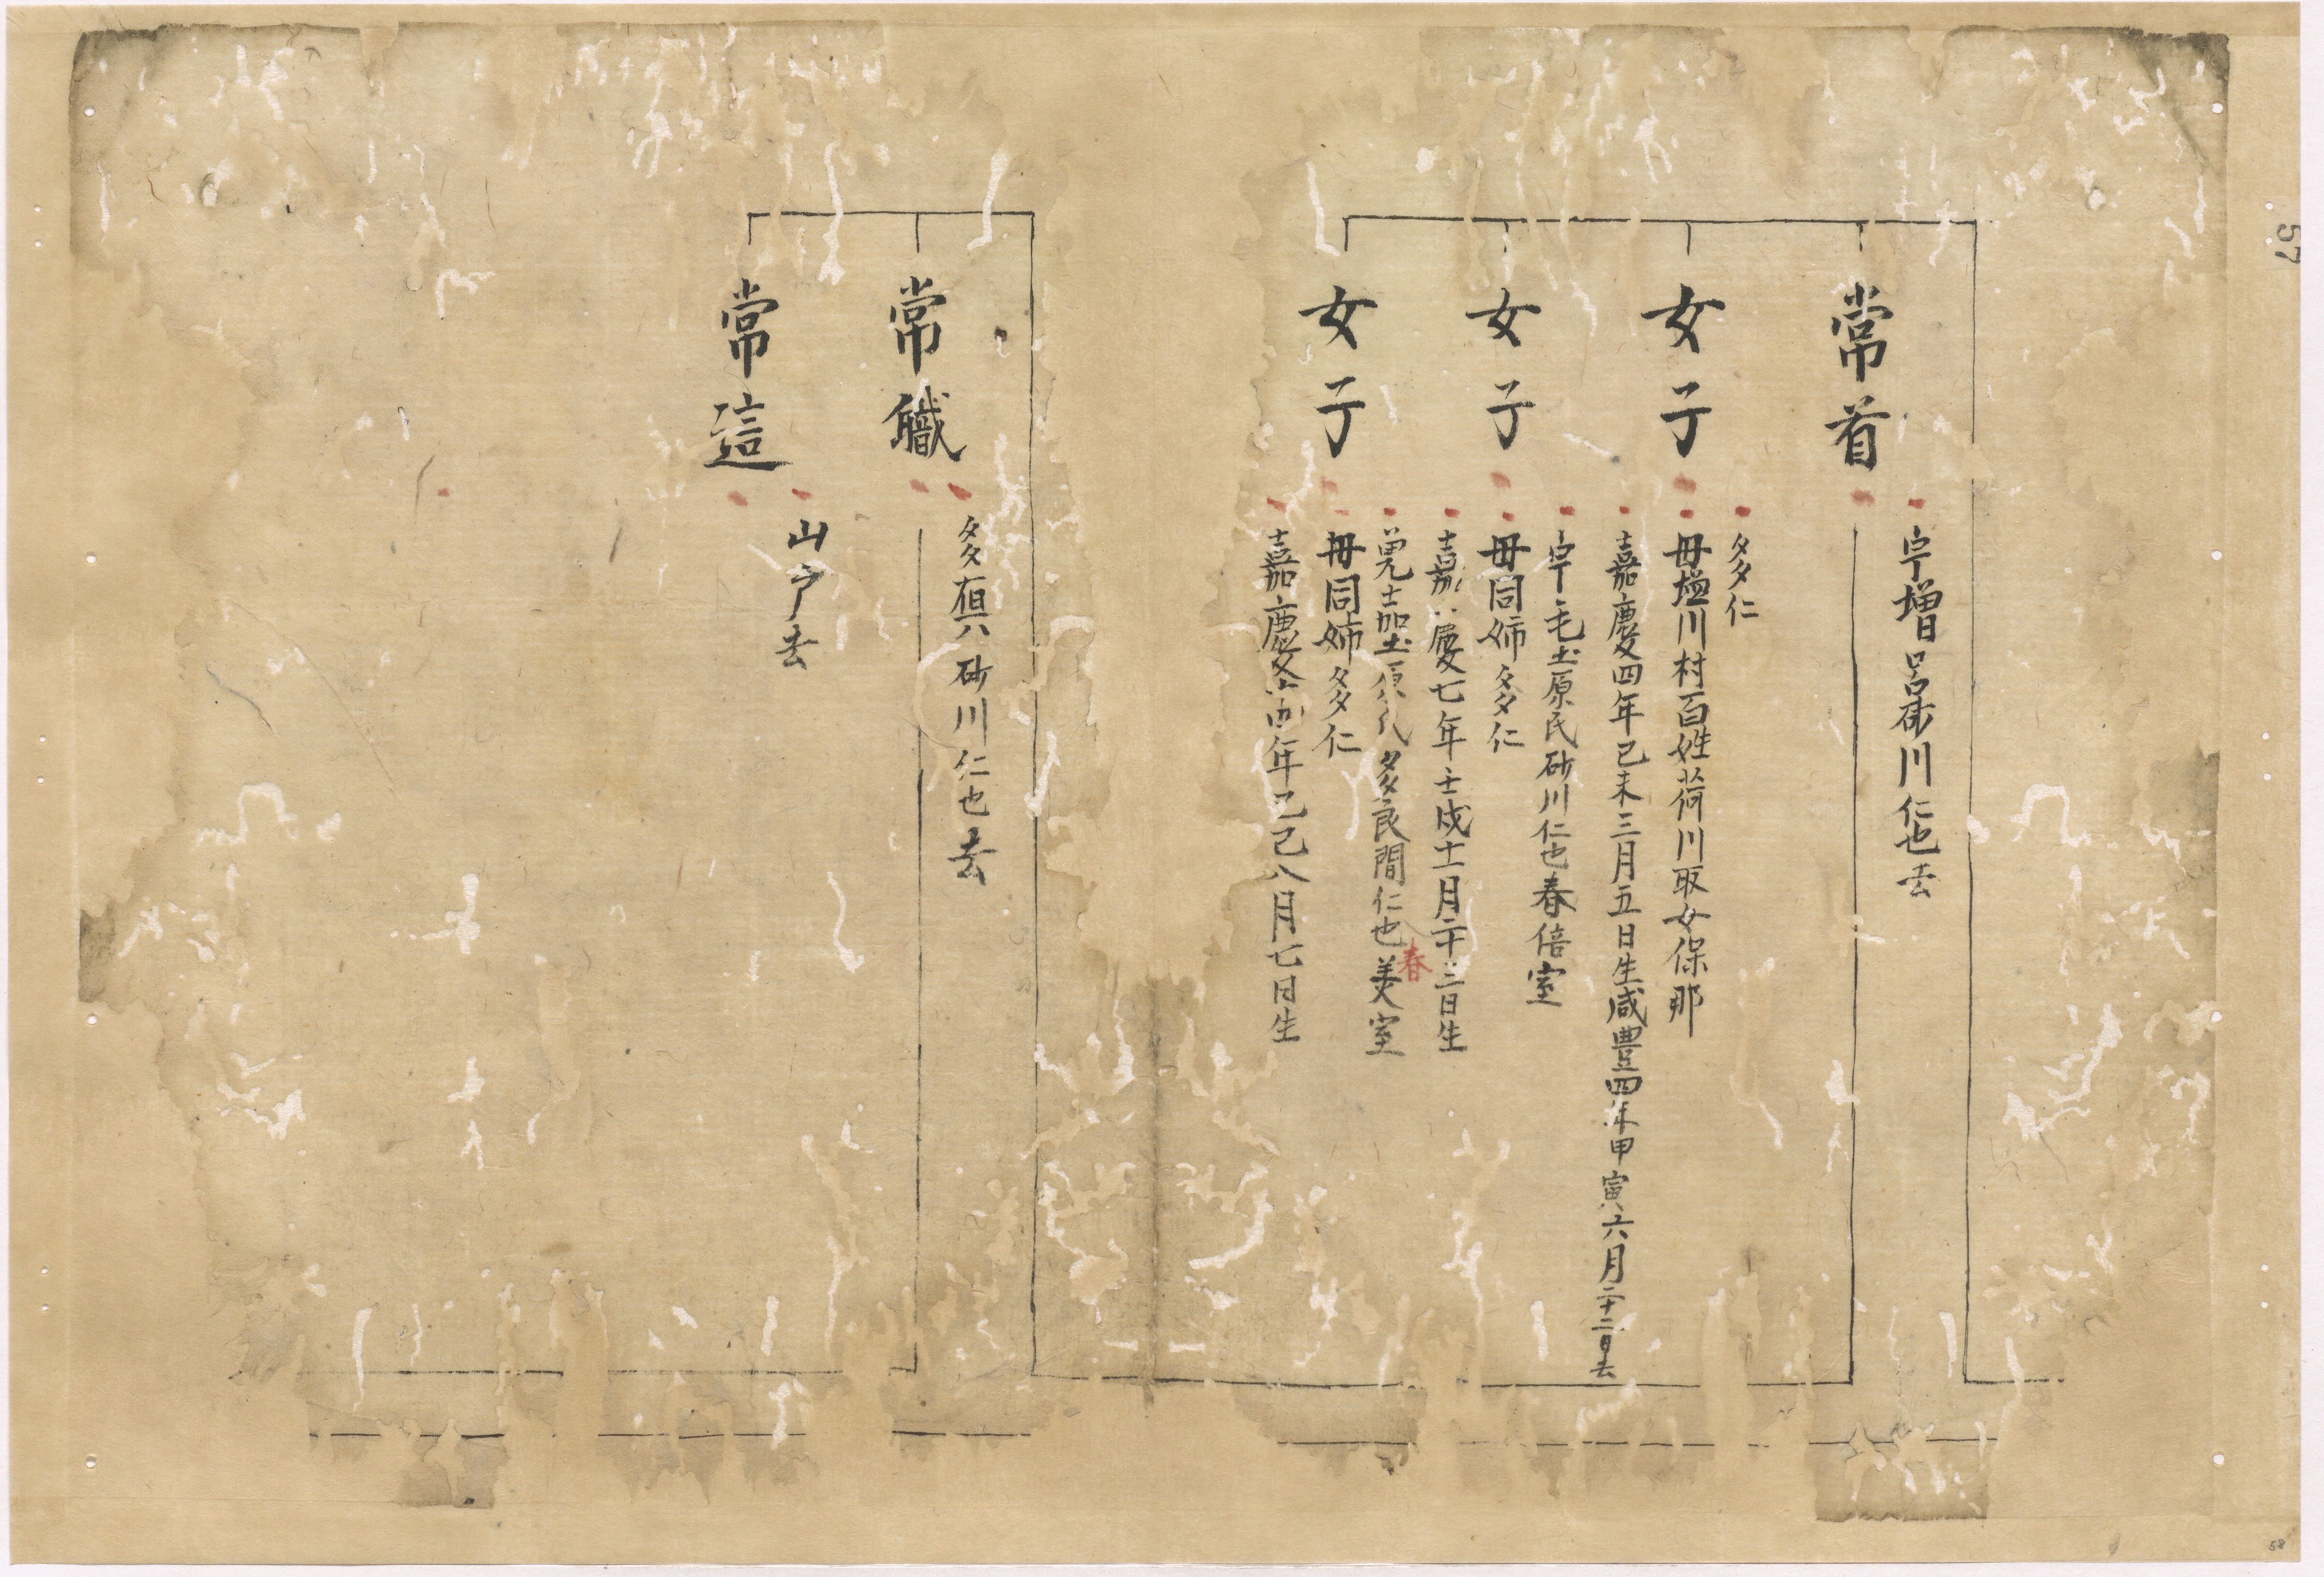 57
常首
宇増呂砂川仁也去
女子
多仁
毋塩川村百姓荷川取女保那
嘉慶四年己未三月五日生咸豊四年甲寅六月二十二日去
女子
宇毛土原民砂川仁也春倍室
毋同姉多仁
嘉慶七年壬戌十一月二十三日生
女子
兄士土原氏多良間仁也美室
春
毋同姉多仁
嘉慶年己巳八月七日生
常職
多砂川仁也去
常這
山戸去
58